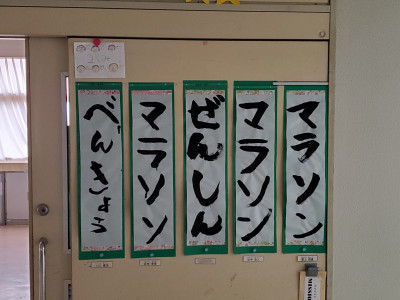 マラソン
マラソン
ぜんしん
マラソン
べんきょう